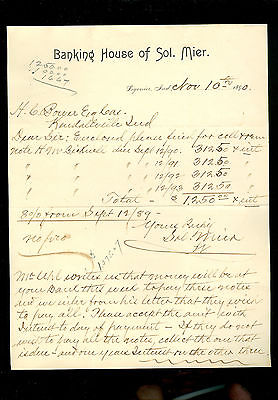 Banking House of Sol. Mier.
Ligonier, Ind Nov 10th 1890.
1250.00
1667
H. C. Power
Kendallville Ind
Dear Sir: Enclosed please find for coll
note due Sept 12/90. 312.50 & int
" " " " 12/91 312.50 "
" " " " 12/92 312.50 "
" " " " 12/93 312.50 "
Total - $1,250.00 & int
8% from Sept 12/89 -
Yours Truly
no pro
Sol. Mier
writes us that money will be at
your Bank this week to pay three notes
and we infer from his letter that they wish
to pay all. Please accept the amt with
Interest to day of payment - If they do not
wish to pay all the notes, collect the one that
is due - and one years Interest on the other three